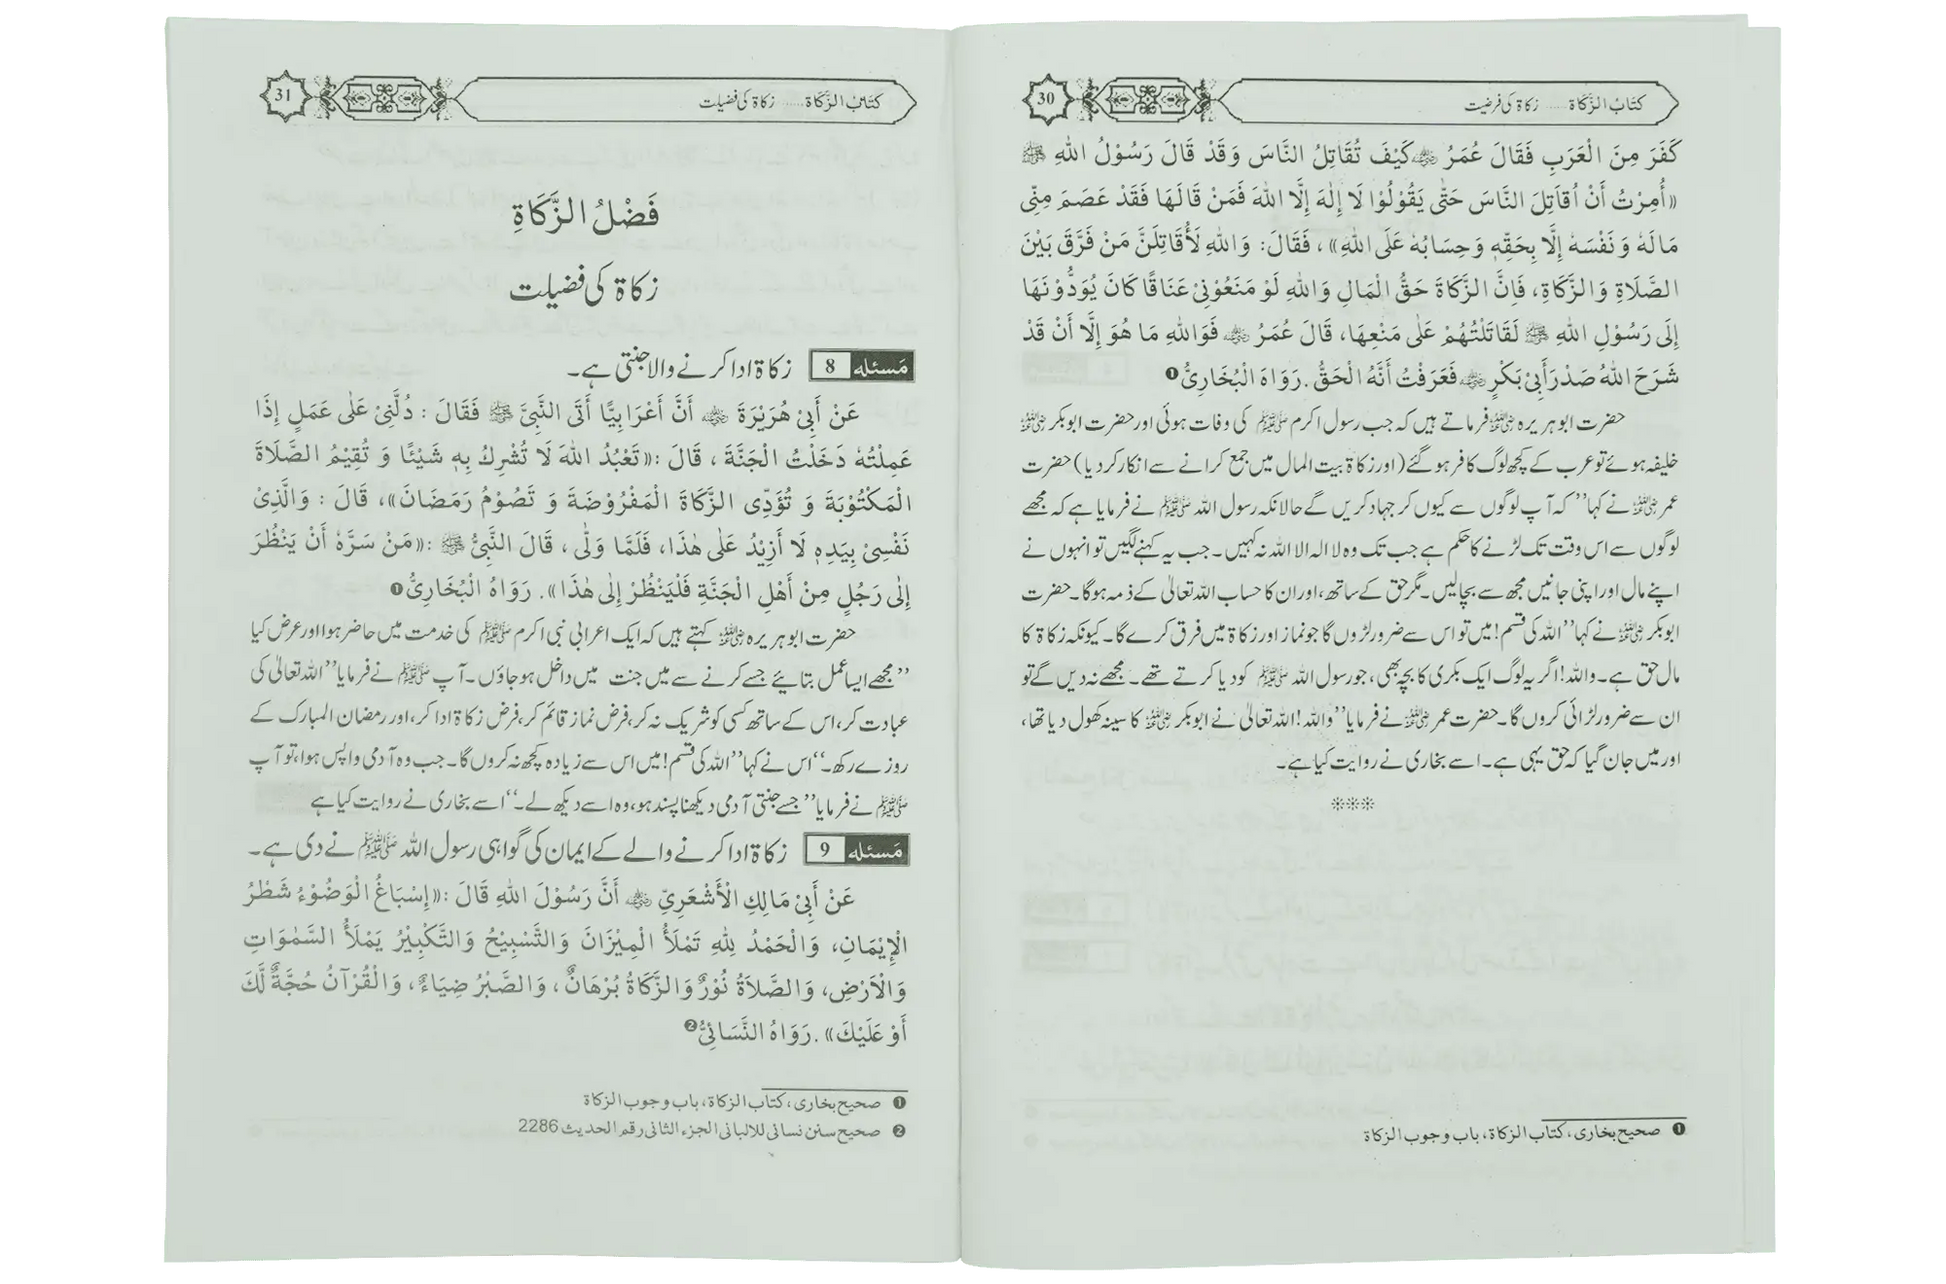 كتاب الزكاة ..... زکاۃ کی فرضیت
30
كَفَرَ مِنَ الْعَرَبِ فَقَالَ عُمَرُ ﷜ كَيْفَ تُقَاتِلُ النَّاسَ وَقَدْ قَالَ رَسُوْلُ اللهِ ﷺ
«أُمِرْتُ أَنْ اُقَاتِلَ النَّاسَ حَتّٰى يَقُوْلُوْا لَا إِلٰهَ إِلَّا اللهَ فَمَنْ قَالَهَا فَقَدْ عَصَمَ مِنِّى
مَالَهُ وَ نَفْسَهُ إِلَّا بِحَقِّهٖ وَحِسَابُهُ عَلَى اللهِ» ، فَقَالَ: وَاللهِ لَأُقَاتِلَنَّ مَنْ فَرَّقَ بَيْنَ
الصَّلَاةِ وَالزَّكَاةِ، فَاِنَّ الزَّكَاةَ حَقُّ الْمَالِ وَاللهِ لَوْ مَنَعُوْنِىْ عَنَاقًا كَانَ يُوَدُّوْنَهَا
إِلَى رَسُوْلِ اللهِ ﷺ لَقَاتَلْتُهُمْ عَلٰى مَنْعِهَا، قَالَ عُمَرُ ﷜ فَوَاللهِ مَا هُوَ إِلَّا أَنْ قَدْ
شَرَحَ اللهُ صَدْرَ أَبِىْ بَكْرٍ ﷜ فَعَرَفْتُ أَنَّهُ الْحَقُّ . رَوَاهَ الْبُخَارِىُّ ❶
حضرت ابوہریرہ ﷜ فرماتے ہیں کہ جب رسول اکرم ﷺ کی وفات ہوئی اور حضرت ابوبکر ﷜
خلیفہ ہوئے تو عرب کے کچھ لوگ کافر ہو گئے (اور زکاۃ بیت المال میں جمع کرانے سے انکار کر دیا) حضرت
عمر ﷜ نے کہا ’’ کہ آپ لوگوں سے کیوں کر جہاد کریں گے حالانکہ رسول اللہ ﷺ نے فرمایا ہے کہ مجھے
لوگوں سے اس وقت تک لڑنے کا حکم ہے جب تک وہ لا الہ الا اللہ نہ کہیں۔ جب یہ کہنے لگیں تو انہوں نے
اپنے مال اور اپنی جانیں مجھ سے بچالیں۔ مگر حق کے ساتھ، اور ان کا حساب اللہ تعالیٰ کے ذمہ ہوگا۔ حضرت
ابوبکر ﷜ نے کہا ’’ اللہ کی قسم! میں تو اس سے ضرور لڑوں گا جو نماز اور زکاۃ میں فرق کرے گا۔ کیونکہ زکاۃ کا
مال حق ہے۔ واللہ! اگر یہ لوگ ایک بکری کا بچہ بھی، جو رسول اللہ ﷺ کو دیا کرتے تھے۔ مجھے نہ دیں گے تو
ان سے ضرور لڑائی کروں گا۔ حضرت عمر ﷜ نے فرمایا ’’ واللہ! اللہ تعالیٰ نے ابوبکر ﷜ کا سینہ کھول دیا تھا،
اور میں جان گیا کہ حق یہی ہے۔ اسے بخاری نے روایت کیا ہے۔
***
❶ صحیح بخاری، کتاب الزکاۃ، باب وجوب الزکاۃ
كتاب الزكاة ..... زکاۃ کی فضیلت
31
فَضْلُ الزَّكَاةِ
زکاۃ کی فضیلت
مَسئله 8 زکاۃ ادا کرنے والا جنتی ہے۔
عَنْ أَبِىْ هُرَيْرَةَ ﷜ أَنَّ أَعْرَابِيًّا أَتَى النَّبِىَّ ﷺ فَقَالَ : دُلَّنِىْ عَلٰى عَمَلٍ إِذَا
عَمِلْتُهُ دَخَلْتُ الْجَنَّةَ ، قَالَ :«تَعْبُدُ اللهَ لَا تُشْرِكُ بِهٖ شَيْئًا وَ تُقِيْمُ الصَّلَاةَ
الْمَكْتُوْبَةَ وَ تُؤَدِّى الزَّكَاةَ الْمَفْرُوْضَةَ وَ تَصُوْمُ رَمَضَانَ» ، قَالَ : وَالَّذِىْ
نَفْسِىْ بِيَدِهٖ لَا أَزِيْدُ عَلٰى هٰذَا ، فَلَمَّا وَلّٰى ، قَالَ النَّبِىُّ ﷺ :«مَنْ سَرَّهُ أَنْ يَنْظُرَ
إِلٰى رَجُلٍ مِنْ أَهْلِ الْجَنَّةِ فَلْيَنْظُرْ إِلٰى هٰذَا» . رَوَاهُ الْبُخَارِىُّ ❶
حضرت ابو ہریرہ ﷜ کہتے ہیں کہ ایک اعرابی نبی اکرم ﷺ کی خدمت میں حاضر ہوا اور عرض کیا
’’ مجھے ایسا عمل بتائیے جسے کرنے سے میں جنت میں داخل ہو جاؤں۔ آپ ﷺ نے فرمایا ’’ اللہ تعالیٰ کی
عبادت کر، اس کے ساتھ کسی کو شریک نہ کر، فرض نماز قائم کر، فرض زکاۃ ادا کر، اور رمضان المبارک کے
روزے رکھ۔‘‘ اس نے کہا ’’ اللہ کی قسم! میں اس سے زیادہ کچھ نہ کروں گا۔ جب وہ آدمی واپس ہوا، تو آپ
ﷺ نے فرمایا ’’ جسے جنتی آدمی دیکھنا پسند ہو، وہ اسے دیکھ لے۔‘‘ اسے بخاری نے روایت کیا ہے
مَسئله 9 زکاۃ ادا کرنے والے کے ایمان کی گواہی رسول اللہ ﷺ نے دی ہے۔
عَنْ أَبِىْ مَالِكِ الْأَشْعَرِىِّ ﷜ أَنَّ رَسُوْلَ اللهِ قَالَ :«إِسْبَاغُ الْوَضُوْءُ شَطْرُ
الْإِيْمَانِ، وَالْحَمْدُ لِلهِ تَمْلَأُ الْمِيْزَانَ وَالتَّسْبِيْحُ وَالتَّكْبِيْرُ يَمْلَأُ السَّمٰوَاتِ
وَالْاَرْضِ، وَالصَّلَاةُ نُوْرٌ وَالزَّكَاةُ بُرْهَانٌ ، وَالصَّبْرُ ضِيَاءٌ ، وَالْقُرْآنُ حُجَّةٌ لَّكَ
أَوْ عَلَيْكَ» . رَوَاهُ النَّسَائِىُّ ❷
❶ صحیح بخاری، کتاب الزکاۃ، باب وجوب الزکاۃ
❷ صحیح سنن نسائی للالبانی الجزء الثانی رقم الحدیث 2286